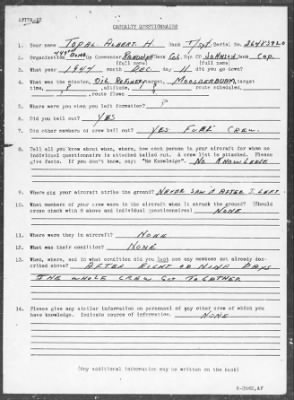 CASUALTY QUESTIONNAIRE
1. Your name TOPAL ALBERT H Rank T/Sgt. Serial No.
2. Organization Gp Commander Col. Sqn CO JOHNSON Cap.
3. What year 1944 month DEC day 11 did you go down?
4. What was the mission, OIL REFINERY, target, MOOSBIERBAUM, target
time, ?, altitude, ? route scheduled,
, route flown
5. Where were you when you left formation? ?
6. Did you bail out? YES
7. Did other members of crew bail out? YES FULL CREW.
8. Tell all you know about when, where, how each person in your aircraft for whom no
individual questionnaire is attached bailed out. A crew list is attached. Please
give facts. If you don't know, say: "No Knowledge". NO KNOWLEDGE
9. Where did your aircraft strike the ground? NEVER SAW IT AFTER I LEFT
10. What members of your crew were in the aircraft when it struck the ground? (Should
cross check with 8 above and individual questionnaires) NONE
11. Where were they in aircraft? NONE
12. What was their condition? NONE
13. When, where, and in what condition did you last see any members not already des-
cribed above? AFTER EIGHT OR NINE DAYS
THE WHOLE CREW GOT TOGATHER
14. Please give any similar information on personnel of any other crew of which you
have knowledge. Indicate source of information. NONE
(Any additional information may be written on the back)